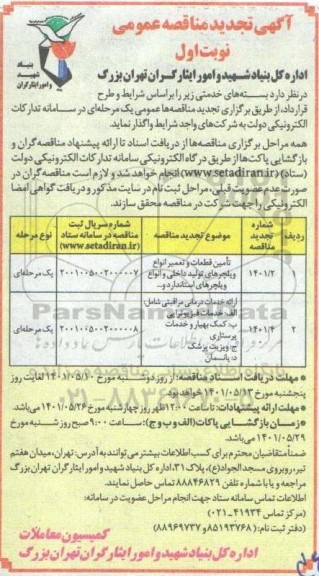 آگهی تجدید مناقصه عمومی
نوبت اول
بنیاد شهید و امور ایثارگران
اداره کل بنیاد شهید و امور ایثارگران تهران بزرگ
در نظر دارد بسته‌های خدمتی زیر را براساس شرایط و طرح
قرارداد، از طریق برگزاری تجدید مناقصه‌ها عمومی یک مرحله‌ای در سامانه تدارکات
الکترونیکی دولت به شرکت‌های واجد شرایط واگذار نماید.
همه مراحل برگزاری مناقصه‌ها از دریافت اسناد تا ارائه پیشنهاد مناقصه‌گران و
بازگشایی پاکت‌ها از طریق درگاه الکترونیکی سامانه تدارکات الکترونیکی دولت
(ستاد) (www.setadiran.ir) انجام خواهد شد و لازم است مناقصه‌گران در
صورت عدم عضویت قبلی، مراحل ثبت نام در سایت مذکور و دریافت گواهی امضا
الکترونیکی را جهت شرکت در مناقصه محقق سازند.
ردیف شماره تجدید مناقصه موضوع تجدید مناقصه شماره سریال ثبت مناقصه در سامانه ستاد (www.setadiran.ir) نوع مرحله
۱ ۱۴۰۱/۲ تأمین قطعات و تعمیر انواع ویلچرهای تولید داخلی و انواع ویلچرهای استاندارد و... ۲۰۰۱۰۰۵۰۰۲۰۰۰۰۰۷ یک مرحله‌ای
۲ ۱۴۰۱/۴ ارائه خدمات درمانی مراقبتی شامل: الف: خدمات فیزیوتراپی ب: کمک بهیار و خدمات پرستاری ج: ویزیت پزشک د: پانسمان ۲۰۰۱۰۰۵۰۰۲۰۰۰۰۰۸ یک مرحله‌ای
* مهلت دریافت اسناد مناقصه: از روز دوشنبه مورخ ۱۴۰۱/۵/۱۰ لغایت روز
پنجشنبه مورخ ۱۴۰۱/۵/۱۳ خواهد بود.
* مهلت ارائه پیشنهادات: تا ساعت ۱۲:۰۰ ظهر روز چهارشنبه مورخ ۱۴۰۱/۰۵/۲۶ می‌باشد.
* زمان بازگشایی پاکات (الف و ب و ج): ساعت ۹:۰۰ صبح روز شنبه مورخ
۱۴۰۱/۰۵/۲۹ می‌باشد.
ضمناً متقاضیان محترم برای کسب اطلاعات بیشتر می‌توانند به آدرس: تهران، میدان هفتم
تیر، روبروی مسجد الجواد(ع)، پلاک ۳۱، اداره کل بنیاد شهید و امور ایثارگران تهران بزرگ
مراجعه و یا با شماره تلفن ۸۸۸۴۶۸۲۹ تماس حاصل نمایند.
اطلاعات تماس سامانه ستاد جهت انجام مراحل عضویت در سامانه:
(مرکز تماس ۴۱۹۳۴-۰۲۱)
(دفتر ثبت نام: ۸۵۱۹۳۷۶۸ و ۸۸۹۶۹۷۳۷)
کمیسیون معاملات
اداره کل بنیاد شهید و امور ایثارگران تهران بزرگ